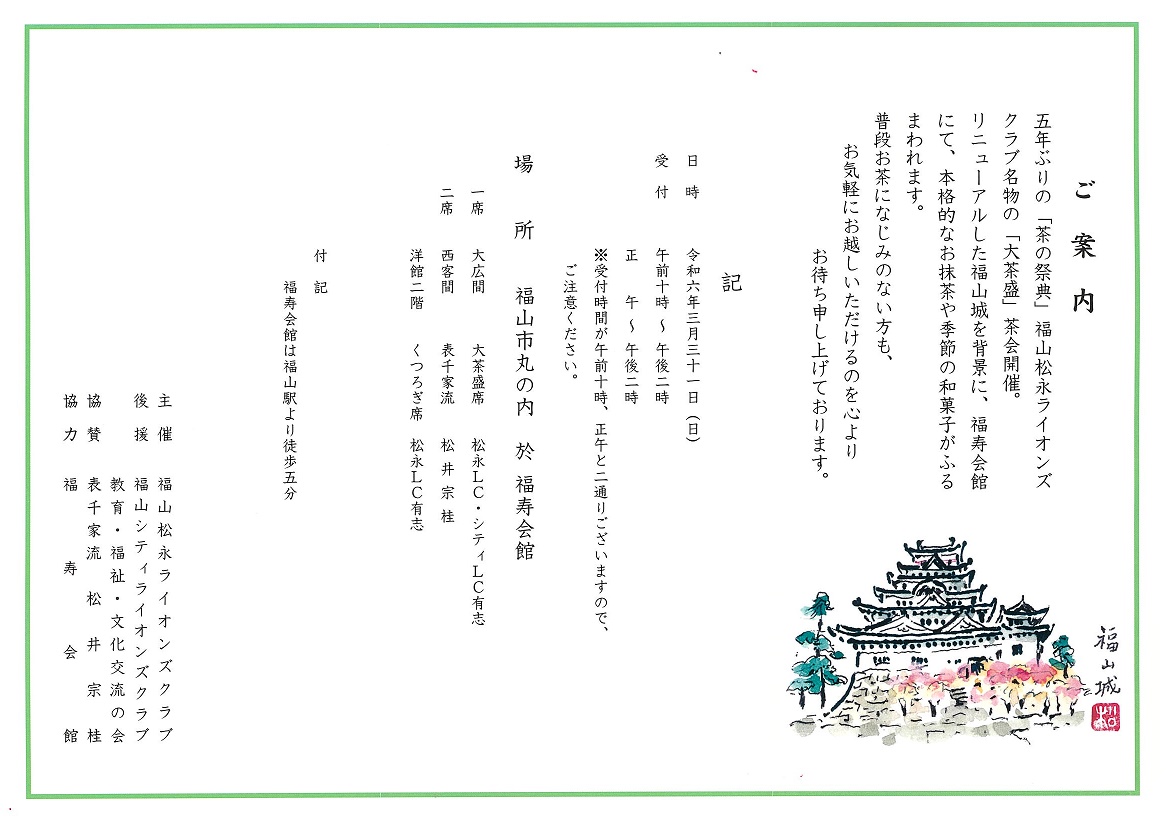 ご案内
五年ぶりの「茶の祭典」福山松永ライオンズ
クラブ名物の「大茶盛」茶会開催。
リニューアルした福山城を背景に、福寿会館
にて、本格的なお抹茶や季節の和菓子がふる
まわれます。
普段お茶になじみのない方も、
お気軽にお越しいただけるのを心より
お待ち申し上げております。
記
日時 令和六年三月三十一日(日)
受付 午前十時~午後二時
正午~午後二時
※受付時間が午前十時、正午と二通りございますので、
ご注意ください。
場所 福山市丸の内 於 福寿会館
一席 大広間 大茶盛席 松永LC・シティLC有志
二席 西客間 表千家流 松井宗桂
洋館二階 くつろぎ席 松永LC有志
付記
福寿会館は福山駅より徒歩五分
主催 福山松永ライオンズクラブ
後援 福山シティライオンズクラブ
教育・福祉・文化交流の会
協賛 表千家流松井宗桂
協力 福寿会館
福山城